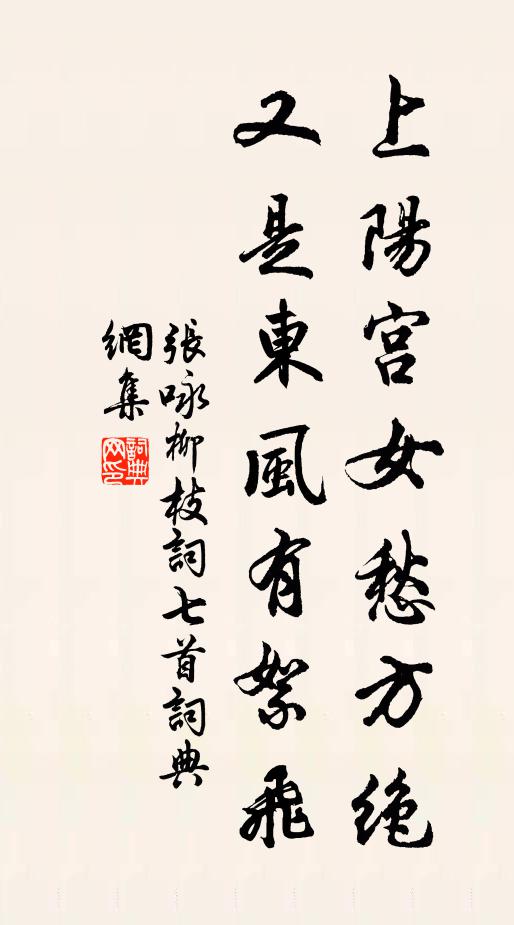 上陽宮女愁方絶
又是東風有絮飛
張咏柳枝詞七首詞典
網集
詞典
网印